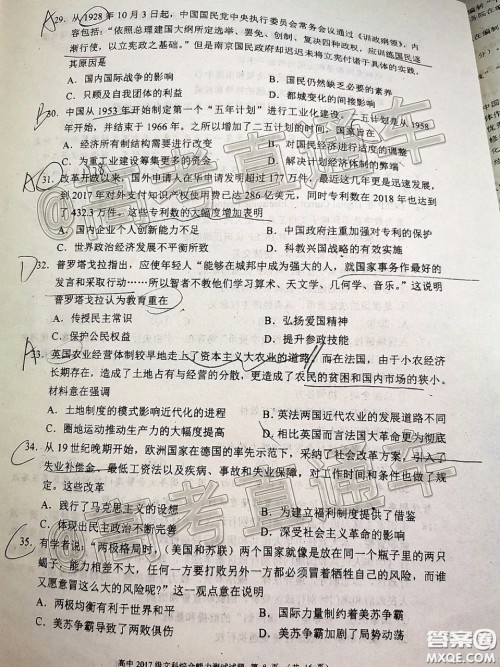 A 29. 从1928年10月3日起，中国国民党中央执行委员会常务会议通过《训政纲领》，内
容包括：“依照总理建国大纲所定选举、罢免、创制、复决四种政权，应训练国民逐
渐行使，以立宪政之基础。”但是南京国民政府却迟迟未将立宪付诸于具体的实践，
其原因是
A. 国内国际战争的影响 B. 国民仍然缺乏必要的素养
C. 只顾及自我团体的利益 D. 都城变化的间接影响
B 30. 中国从1953年开始制定第一个“五年计划”进行工业化建设，二五计划是从1958
年开始，并结束于1966年。之所以增加了二五计划的时间，国家旨在
A. 经济所有制结构需要进行改变 B. 对国民经济进行适度的调整
C. 为重工业建设筹集更多的资金 D. 解决计划经济体制的弊端
A 31. 改革开放以来，国外申请人在华申请发明超过177万件，最近几年这个速度更是迅速，
到2017年对外支付知识产权使用费已达286亿美元，同时专利数在2018年也达到
了432.3万件。这些专利数的大幅度增加表明
A. 国内企业个人创新能力不足 B. 中国政府注重加强对专利的保护
C. 世界政治经济发展不平衡形 D. 科教兴国战略的有效实施
D 32. 普罗塔戈拉指出，应使年轻人“能够在城邦中成为强大的人，就国家事务作最好的
发言和采取行动……所以智者不教他们学习算术、天文学、几何学、音乐。”这说明
普罗塔戈拉认为教育重在
A. 传授民主常识 B. 弘扬爱国精神
C. 保护公民权益 D. 提升参政技能
A 33. 英国农业经营体制较早地走上了资本主义大农业的道路，而在法国，由于小农经济
长期存在，造成了土地占有与经营的分散，更造成了农民的贫困和国内市场的狭小。
材料意在强调
A. 土地制度的模式影响近代化的进程 B. 英法两国近代农业的发展道路不同
C. 圈地运动推动近代产业的大幅度提高 D. 相比英国而言法国大革命更为彻底
C 34. 从19世纪晚期开始，欧洲国家在德国的率先示范下，采纳了社会改革方案，引入了
失业补偿金、最低工资法以及疾病、事故和失业保障，对工作时间和条件也做了规
定。这些改革
A. 践行了马克思主义思想 B. 为建立福利制度提供了借鉴
C. 体现出民主政治不断完善 D. 深受社会主义革命的影响
C 35. 有学者说：“两极格局时，（美国和苏联）两个国家就像是放在同一个瓶子里的两只
蝎子：能力相当，任何一方都没有力量轻易毁灭另外一方而不危及自己的性命，而谁
又愿意冒这么大的风险呢？”这一观点意在说明
A. 两极均衡有利于世界和平 B. 国际力量制约着美苏争霸
C. 美苏争霸导致了两败俱伤 D. 美苏争霸加剧了局势动荡
高中2017级文科综合能力测试试题